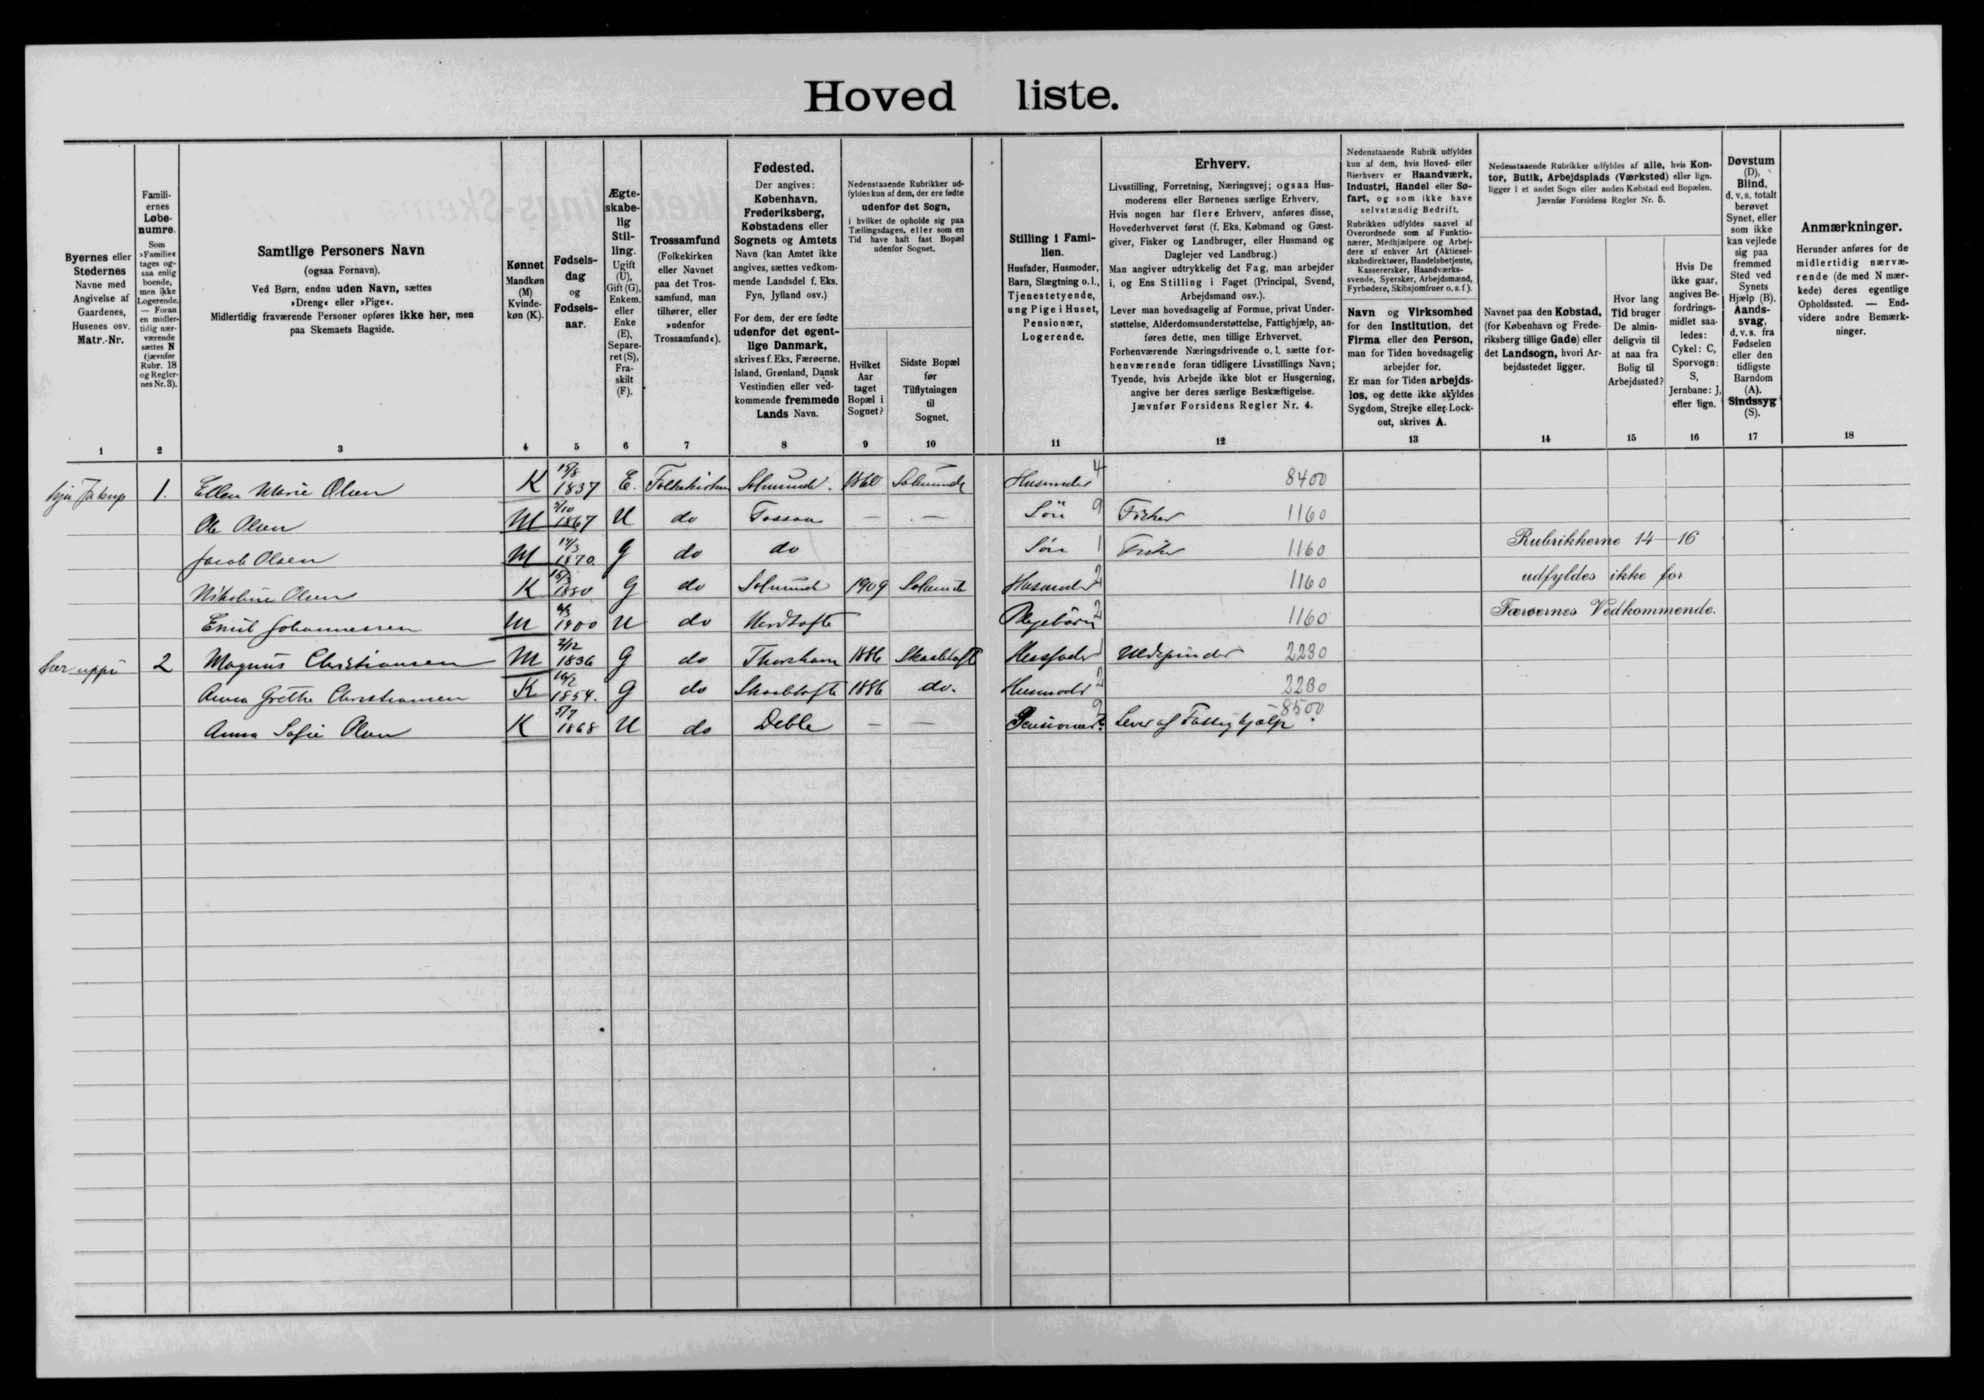 Hoved liste.
Byernes eller
Stedernes
Navne med
Angivelse af
Gaardenes,
Husenes osv.
Matr.-Nr.
1
Famili-
ernes
Løbe-
numre.
Som
»Familie«
tages og-
saa enlig
boende,
men ikke
Logerende.
— Foran
en midler-
tidig nær-
værende
sættes N
(jævnfør
Rubr. 18
og Regler-
nes Nr. 3).
2
Samtlige Personers Navn
(ogsaa Fornavn).
Ved Børn, endnu uden Navn, sættes
»Dreng« eller »Pige«.
Midlertidig fraværende Personer opføres ikke her, men
paa Skemaets Bagside.
3
Kønnet
Mandkøn
(M)
Kvinde-
køn (K).
4
Fødsels-
dag
og
Fødsels-
aar.
5
Ægte-
skabe-
lig
Stil-
ling.
Ugift
(U),
Gift (G),
Enkem.
eller
Enke
(E),
Separe-
ret (S),
Fra-
skilt
(F).
6
Trossamfund
(Folkekirken
eller Navnet
paa det Tros-
samfund, man
tilhører, eller
»udenfor
Trossamfund«).
7
Fødested.
Der angives:
København,
Frederiksberg,
Købstadens eller
Sognets og Amtets
Navn (kan Amtet ikke
angives, sættes vedkom-
mende Landsdel f. Eks.
Fyn, Jylland osv.)
For dem, der ere fødte
udenfor det egent-
lige Danmark,
skrives f. Eks. Færøerne,
Island, Grønland, Dansk
Vestindien eller ved-
kommende fremmede
Lands Navn.
8
Nedenstaaende Rubrikker ud-
fyldes kun af dem, der ere fødte
udenfor det Sogn,
i hvilket de opholde sig paa
Tællingsdagen, eller som en
Tid have haft fast Bopæl
udenfor Sognet.
Hvilket
Aar
taget
Bopæl i
Sognet?
9
Sidste Bopæl
før
Tilflytningen
til
Sognet.
10
Stilling i Fami-
lien.
Husfader, Husmoder,
Barn, Slægtning o.l.,
Tjenestetyende,
ung Pige i Huset,
Pensionær,
Logerende.
11
Erhverv.
Livsstilling, Forretning, Næringsvej; ogsaa Hus-
moderens eller Børnenes særlige Erhverv.
Hvis nogen har flere Erhverv, anføres disse,
Hovederhvervet først (f. Eks. Købmand og Gæst-
giver, Fisker og Landbruger, eller Husmand og
Daglejer ved Landbrug.)
Man angiver udtrykkelig det Fag, man arbejder
i, og Ens Stilling i Faget (Principal, Svend,
Arbejdsmand osv.).
Lever man hovedsagelig af Formue, privat Under-
støttelse, Alderdomsunderstøttelse, Fattighjælp, an-
føres dette, men tillige Erhvervet.
Forhenværende Næringsdrivende o. l. sætte for-
henværende foran tidligere Livsstillings Navn;
Tyende, hvis Arbejde ikke blot er Husgerning,
angive her deres særlige Beskæftigelse.
Jævnfør Forsidens Regler Nr. 4.
12
Nedenstaaende Rubrik udfyldes
kun af dem, hvis Hoved- eller
Bierhverv er Haandværk,
Industri, Handel eller Sø-
fart, og som ikke have
selvstændig Bedrift.
Rubrikken udfyldes saavel af
Overordnede som af Funktio-
nærer, Medhjælpere og Arbej-
dere af enhver Art (Aktiesel-
skabsdirektører, Handelsbetjente,
Kasserersker, Haandværks-
svende, Syersker, Arbejdsmænd,
Fyrbødere, Skibsjomfruer o. s. f.).
Navn og Virksomhed
for den Institution, det
Firma eller den Person,
man for Tiden hovedsagelig
arbejder for.
Er man for Tiden arbejds-
løs, og dette ikke skyldes
Sygdom, Strejke eller Lock-
out, skrives A.
13
Nedenstaaende Rubrikker udfyldes af alle, hvis Kon-
tor, Butik, Arbejdsplads (Værksted) eller lign.
ligger i et andet Sogn eller anden Købstad end Bopælen.
Jævnfør Forsidens Regler Nr. 5.
Navnet paa den Købstad,
(for København og Frede-
riksberg tillige Gade) eller
det Landsogn, hvori Ar-
bejdsstedet ligger.
14
Hvor lang
Tid bruger
De almin-
deligvis til
at naa fra
Bolig til
Arbejdssted?
15
Hvis De
ikke gaar,
angives Be-
fordrings-
midlet saa-
ledes:
Cykel: C,
Sporvogn:
S,
Jernbane: J,
eller lign.
16
Døvstum
(D),
Blind,
d. v. s. totalt
berøvet
Synet, eller
som ikke
kan vejlede
sig paa
fremmed
Sted ved
Synets
Hjælp (B).
Aands-
svag,
d. v. s. fra
Fødselen
eller den
tidligste
Barndom
(A).
Sindssyg
(S).
17
Anmærkninger.
Herunder anføres for de
midlertidig nærvæ-
rende (de med N mær-
kede) deres egentlige
Opholdssted. — End-
videre andre Bemærk-
ninger.
18
1. Ellen Marie Olsen K 15/8 1837 E. Folkekirken 1860 Husmoder 4 8400
Ole Olsen M 2/10 1867 U do Fossaa — — Søn 9 Fisker 1160
Jacob Olsen M 1870 G do do Søn 1 Fisker 1160
Nikoline Olsen K 1880 G do 1909 Husmoder 2 1160
Emil Johannessen M 1900 U do Nordtofte Plejebarn 2 1160
2 Magnus Christiansen M 2/12 1836 G do Thorshavn 1886 Skaaletofte Husfader 1 Uldspinder 2230
Anna Grethe Christiansen K 1854. G do Skaaletofte 1886 do. Husmoder 2 2230
Anna Sofie Olsen K 5/7 1868 U do Deble — — Pensionær 9 Lever af Fattighjælp. 8500
Rubrikkerne 14—16
udfyldes ikke for
Færøernes Vedkommende.